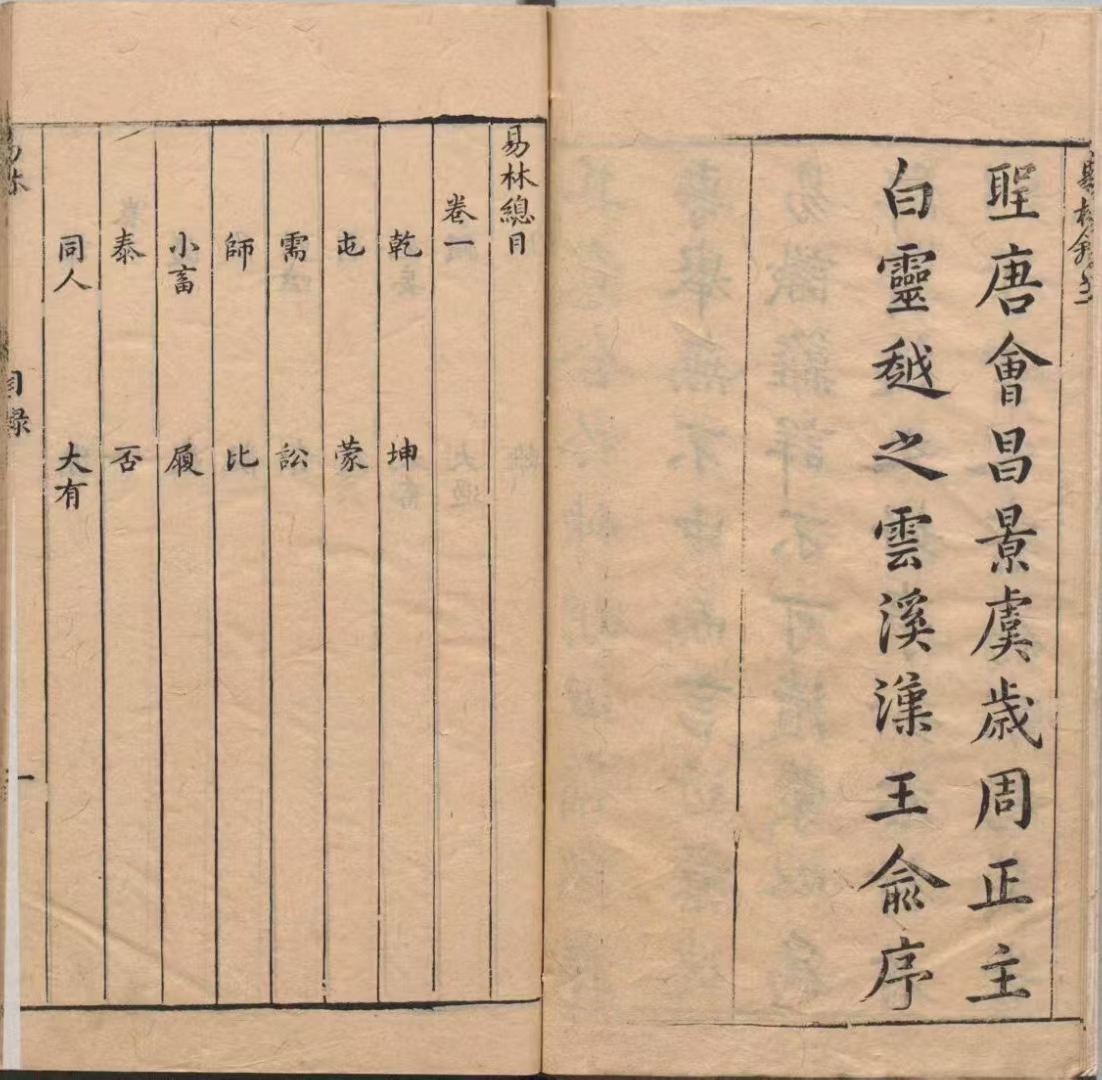 聖唐會昌景虞歲周正主
白靈越之雲溪漢王俞序
易林總目
卷一
乾 坤
屯 蒙
需 訟
師 比
小畜 履
泰 否
同人 大有
易林 目録 一